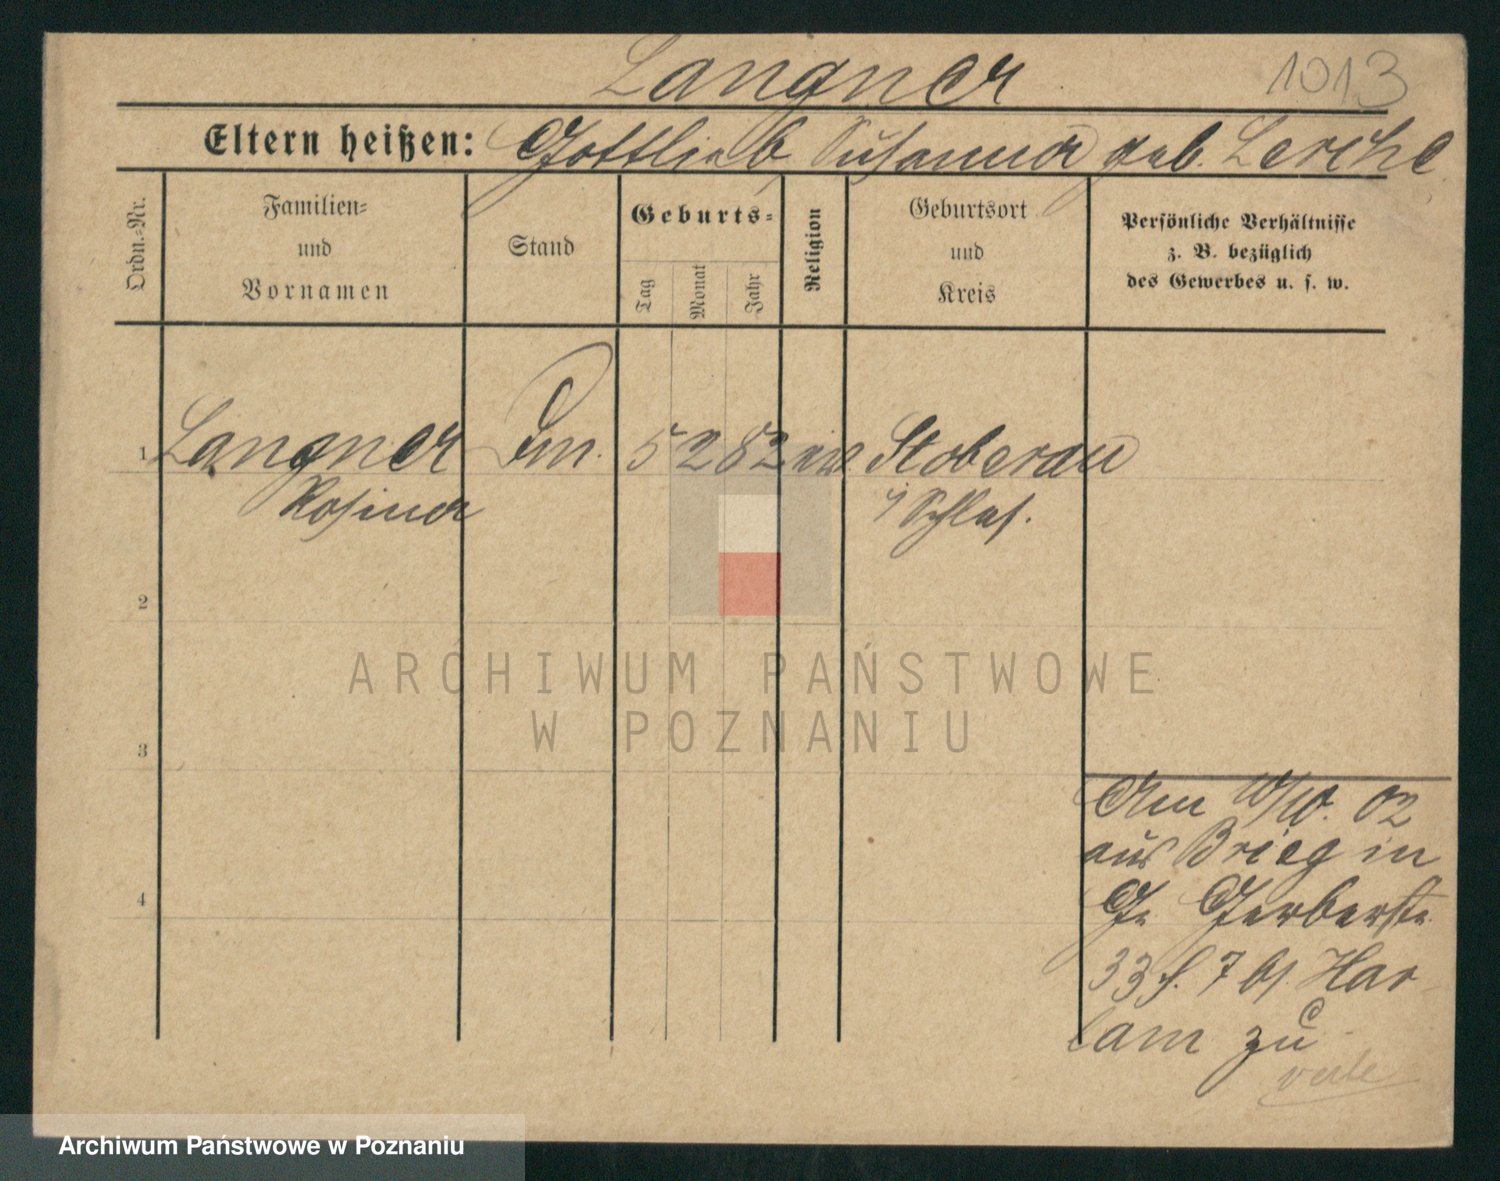 Langner
1013
Eltern heißen: Gottlieb Susanna geb. Lerche
Ordn.-Nr.
Familien-
und
Vornamen
Stand
Geburts-
Tag
Monat
Jahr
Religion
Geburtsort
und
Kreis
Persönliche Verhältnisse
z. B. bezüglich
des Gewerbes u. s. w.
1 Langner 5 2 82 ev. Stoberau
Rosina i/Schles.
2
ARCHIWUM PAŃSTWOWE
W POZNANIU
3
Am 10/10. 02
aus Brieg in
4
Gr Gerberstr.
33 f. 7 b/ Har
lam zu
Archiwum Państwowe w Poznaniu